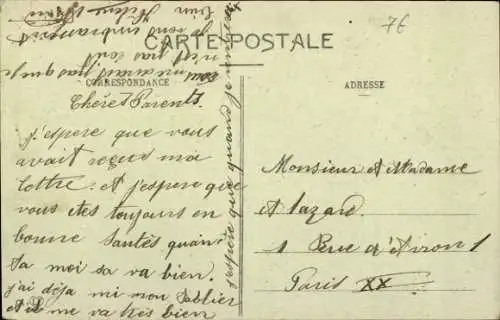 76
CARTE POSTALE
CORRESPONDANCE
ADRESSE
Chéres Parents
j'espere que vous
avait reçus ma
lettre. et j'espere que
vous etes toujours en
bonne santés quan
ta moi sa va bien.
j'ai déja mi mon tablier
et il me va très bien
j'espère que quand je
vous
n'est pas
je vous embrassent
Monsieur et Madame
Alazard.
1 Rue d'Avron 1
Paris XX